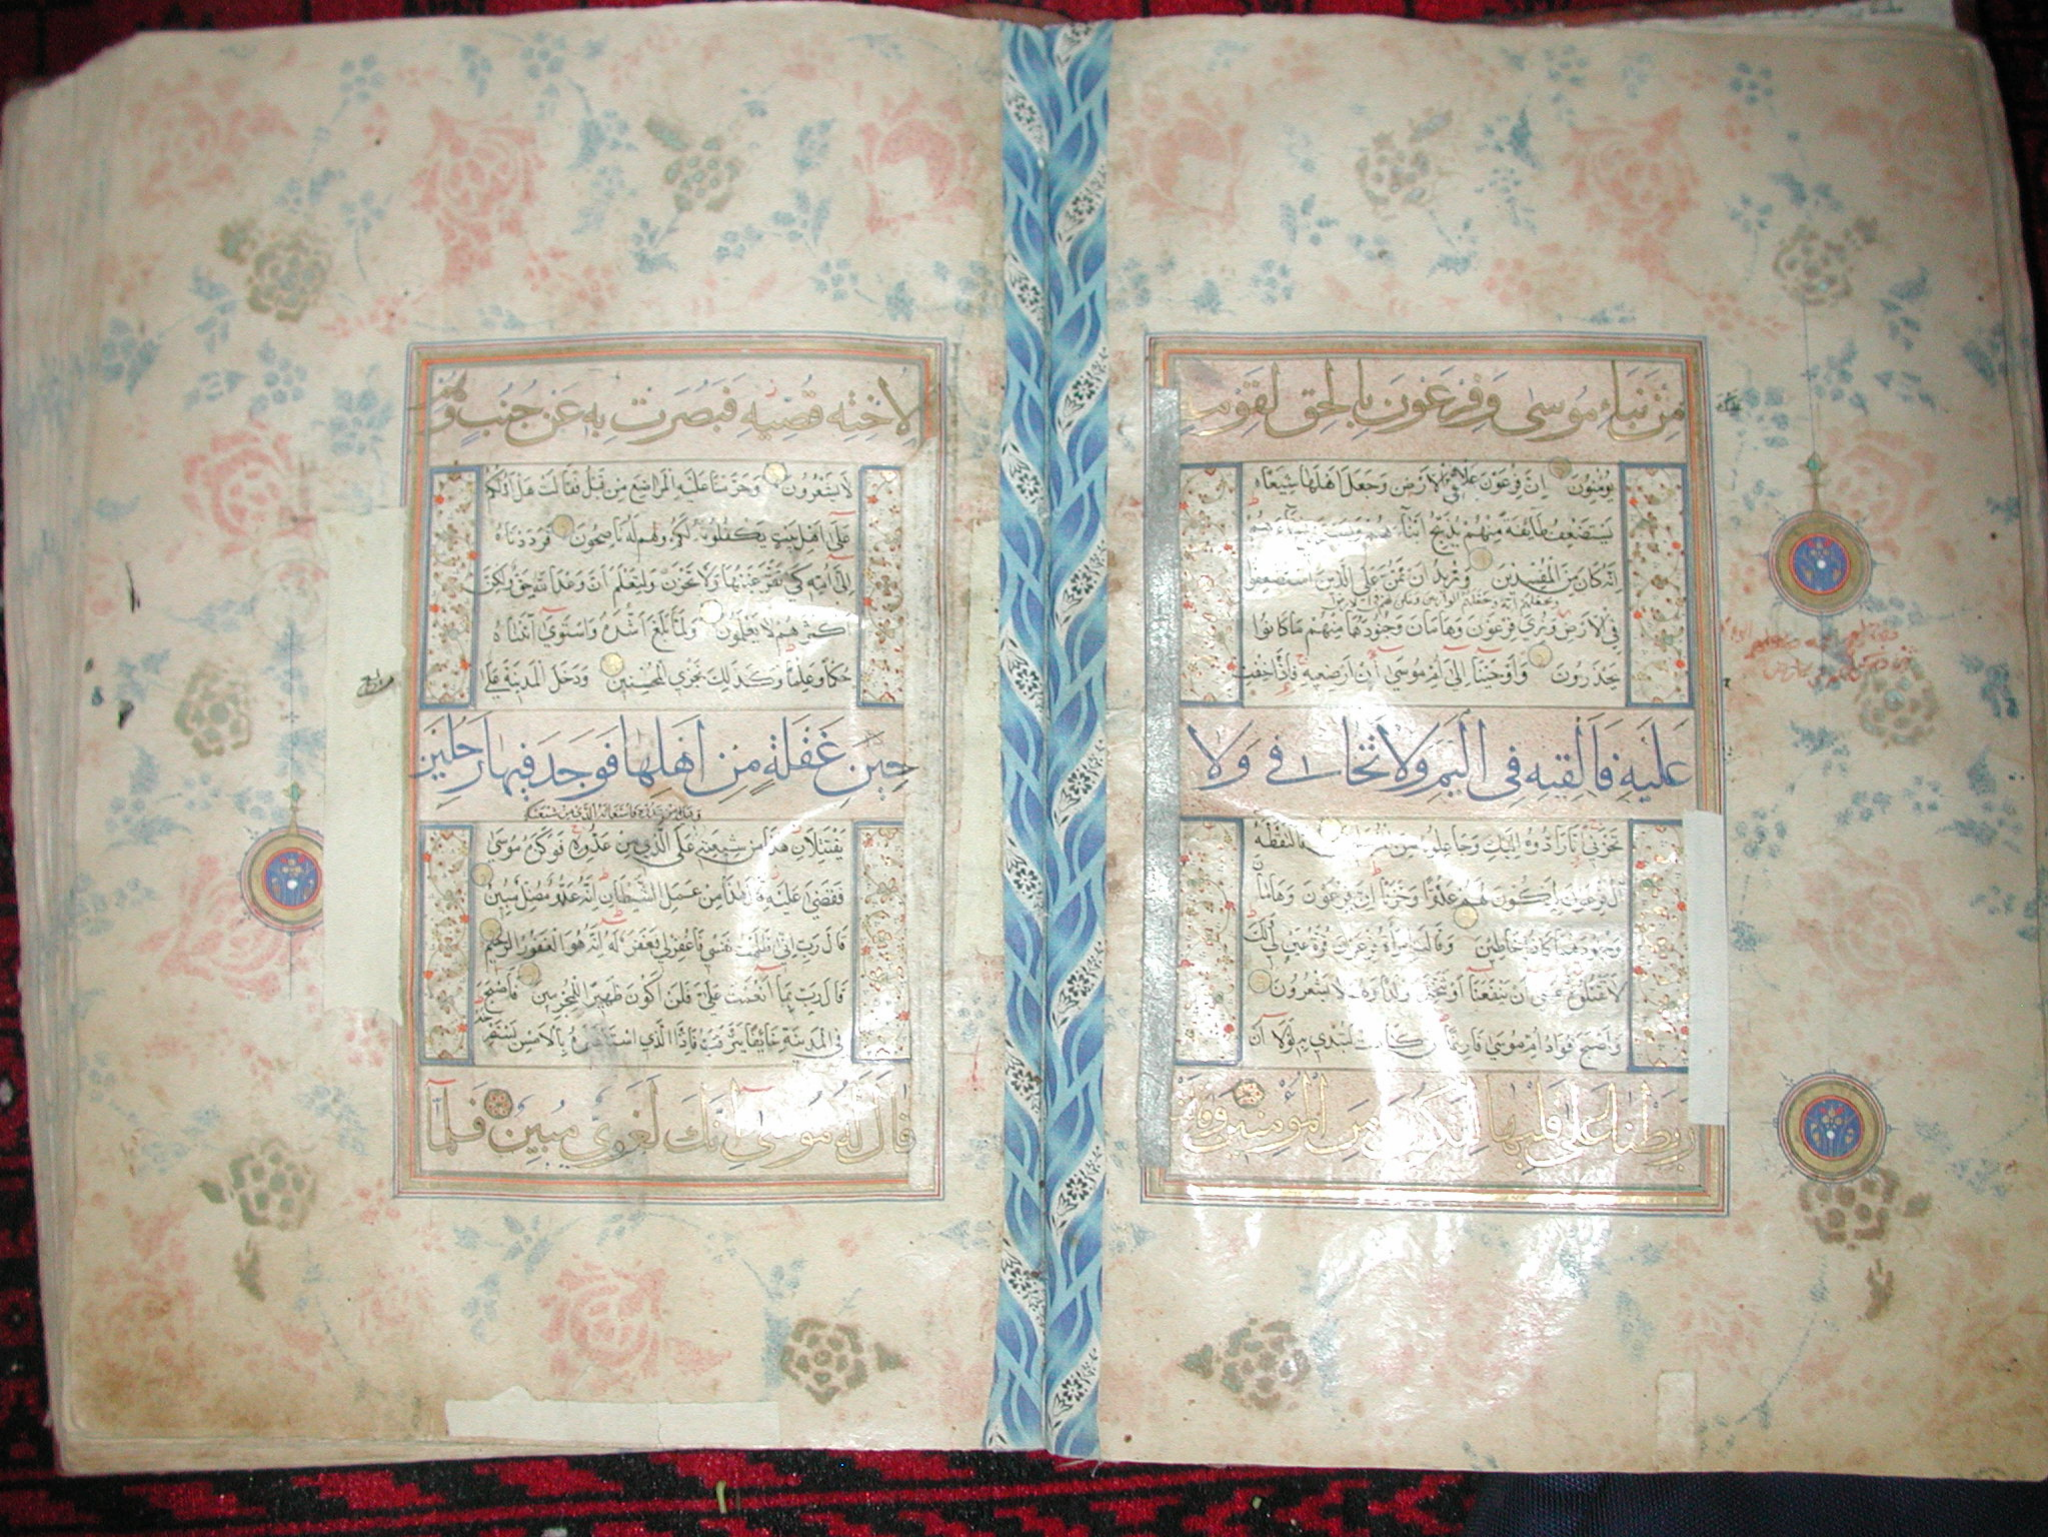 مِنْ نَبَاءِ مُوسَى وَفِرْعَوْنَ بِالْحَقِّ لِقَوْمٍ
يُؤْمِنُونَ اِنَّ فِرْعَوْنَ عَلَا فِي الْاَرْضِ وَجَعَلَ اَهْلَهَا شِيَعًا
يَسْتَضْعِفُ طَآئِفَةً مِنْهُمْ يُذَبِّحُ اَبْنَآءَهُمْ وَيَسْتَحْيِي نِسَآءَهُمْ
اِنَّهُ كَانَ مِنَ الْمُفْسِدِينَ وَنُرِيدُ اَنْ نَمُنَّ عَلَى الَّذِينَ اسْتُضْعِفُوا
ونجعلهم ائمة ونجعلهم الوارثين ونمكن لهم
فِي الْاَرْضِ وَنُرِيَ فِرْعَوْنَ وَهَامَانَ وَجُنُودَهُمَا مِنْهُمْ مَا كَانُوا
يَحْذَرُونَ وَاَوْحَيْنَا اِلَى اُمِّ مُوسَى اَنْ اَرْضِعِيهِ فَاِذَا خِفْتِ
عَلَيْهِ فَاَلْقِيهِ فِي الْيَمِّ وَلَا تَخَافِي وَلَا
تَحْزَنِي اِنَّا رَادُّوهُ اِلَيْكِ وَجَاعِلُوهُ مِنَ فَالْتَقَطَهُ
آلُ فِرْعَوْنَ لِيَكُونَ لَهُمْ عَدُوًّا وَحَزَنًا اِنَّ فِرْعَوْنَ وَهَامَانَ
وَجُنُودَهُمَا كَانُوا خَاطِئِينَ وَقَالَتِ امْرَأَةُ فِرْعَوْنَ قُرَّةُ عَيْنٍ لِي وَلَكَ
لَا تَقْتُلُوهُ عَسَى اَنْ يَنْفَعَنَا اَوْ نَتَّخِذَهُ وَلَدًا وَهُمْ لَا يَشْعُرُونَ
وَاَصْبَحَ فُؤَادُ اُمِّ مُوسَى فَارِغًا اِنْ كَادَتْ لَتُبْدِي بِهِ لَوْلَا اَنْ
رَبَطْنَا عَلَى قَلْبِهَا لِتَكُونَ مِنَ الْمُؤْمِنِينَ وَقَالَتْ
لِاُخْتِهِ قُصِّيهِ فَبَصُرَتْ بِهِ عَنْ جُنُبٍ وَهُمْ
لَا يَشْعُرُونَ وَحَرَّمْنَا عَلَيْهِ الْمَرَاضِعَ مِنْ قَبْلُ فَقَالَتْ هَلْ اَدُلُّكُمْ
عَلَى اَهْلِ بَيْتٍ يَكْفُلُونَهُ لَكُمْ وَهُمْ لَهُ نَاصِحُونَ فَرَدَدْنَاهُ
اِلَى اُمِّهِ كَيْ تَقَرَّ عَيْنُهَا وَلَا تَحْزَنَ وَلِتَعْلَمَ اَنَّ وَعْدَ اللهِ حَقٌّ وَلَكِنَّ
اَكْثَرَهُمْ لَا يَعْلَمُونَ وَلَمَّا بَلَغَ اَشُدَّهُ وَاسْتَوَى آتَيْنَاهُ
حُكْمًا وَعِلْمًا وَكَذَلِكَ نَجْزِي الْمُحْسِنِينَ وَدَخَلَ الْمَدِينَةَ عَلَى
حِينِ غَفْلَةٍ مِنْ اَهْلِهَا فَوَجَدَ فِيهَا رَجُلَيْنِ
وهذا من عدوه فاستغاثه الذي من شيعته
يَقْتَتِلَانِ هَذَا مِنْ شِيعَتِهِ عَلَى الَّذِي مِنْ عَدُوِّهِ فَوَكَزَهُ مُوسَى
فَقَضَى عَلَيْهِ قَالَ هَذَا مِنْ عَمَلِ الشَّيْطَانِ اِنَّهُ عَدُوٌّ مُضِلٌّ مُبِينٌ
قَالَ رَبِّ اِنِّي ظَلَمْتُ نَفْسِي فَاغْفِرْ لِي فَغَفَرَ لَهُ اِنَّهُ هُوَ الْغَفُورُ الرَّحِيمُ
قَالَ رَبِّ بِمَا اَنْعَمْتَ عَلَيَّ فَلَنْ اَكُونَ ظَهِيرًا لِلْمُجْرِمِينَ فَاَصْبَحَ
فِي الْمَدِينَةِ خَآئِفًا يَتَرَقَّبُ فَاِذَا الَّذِي اسْتَنْصَرَهُ بِالْاَمْسِ يَسْتَصْرِخُهُ
قَالَ لَهُ مُوسَى اِنَّكَ لَغَوِيٌّ مُبِينٌ فَلَمَّآ